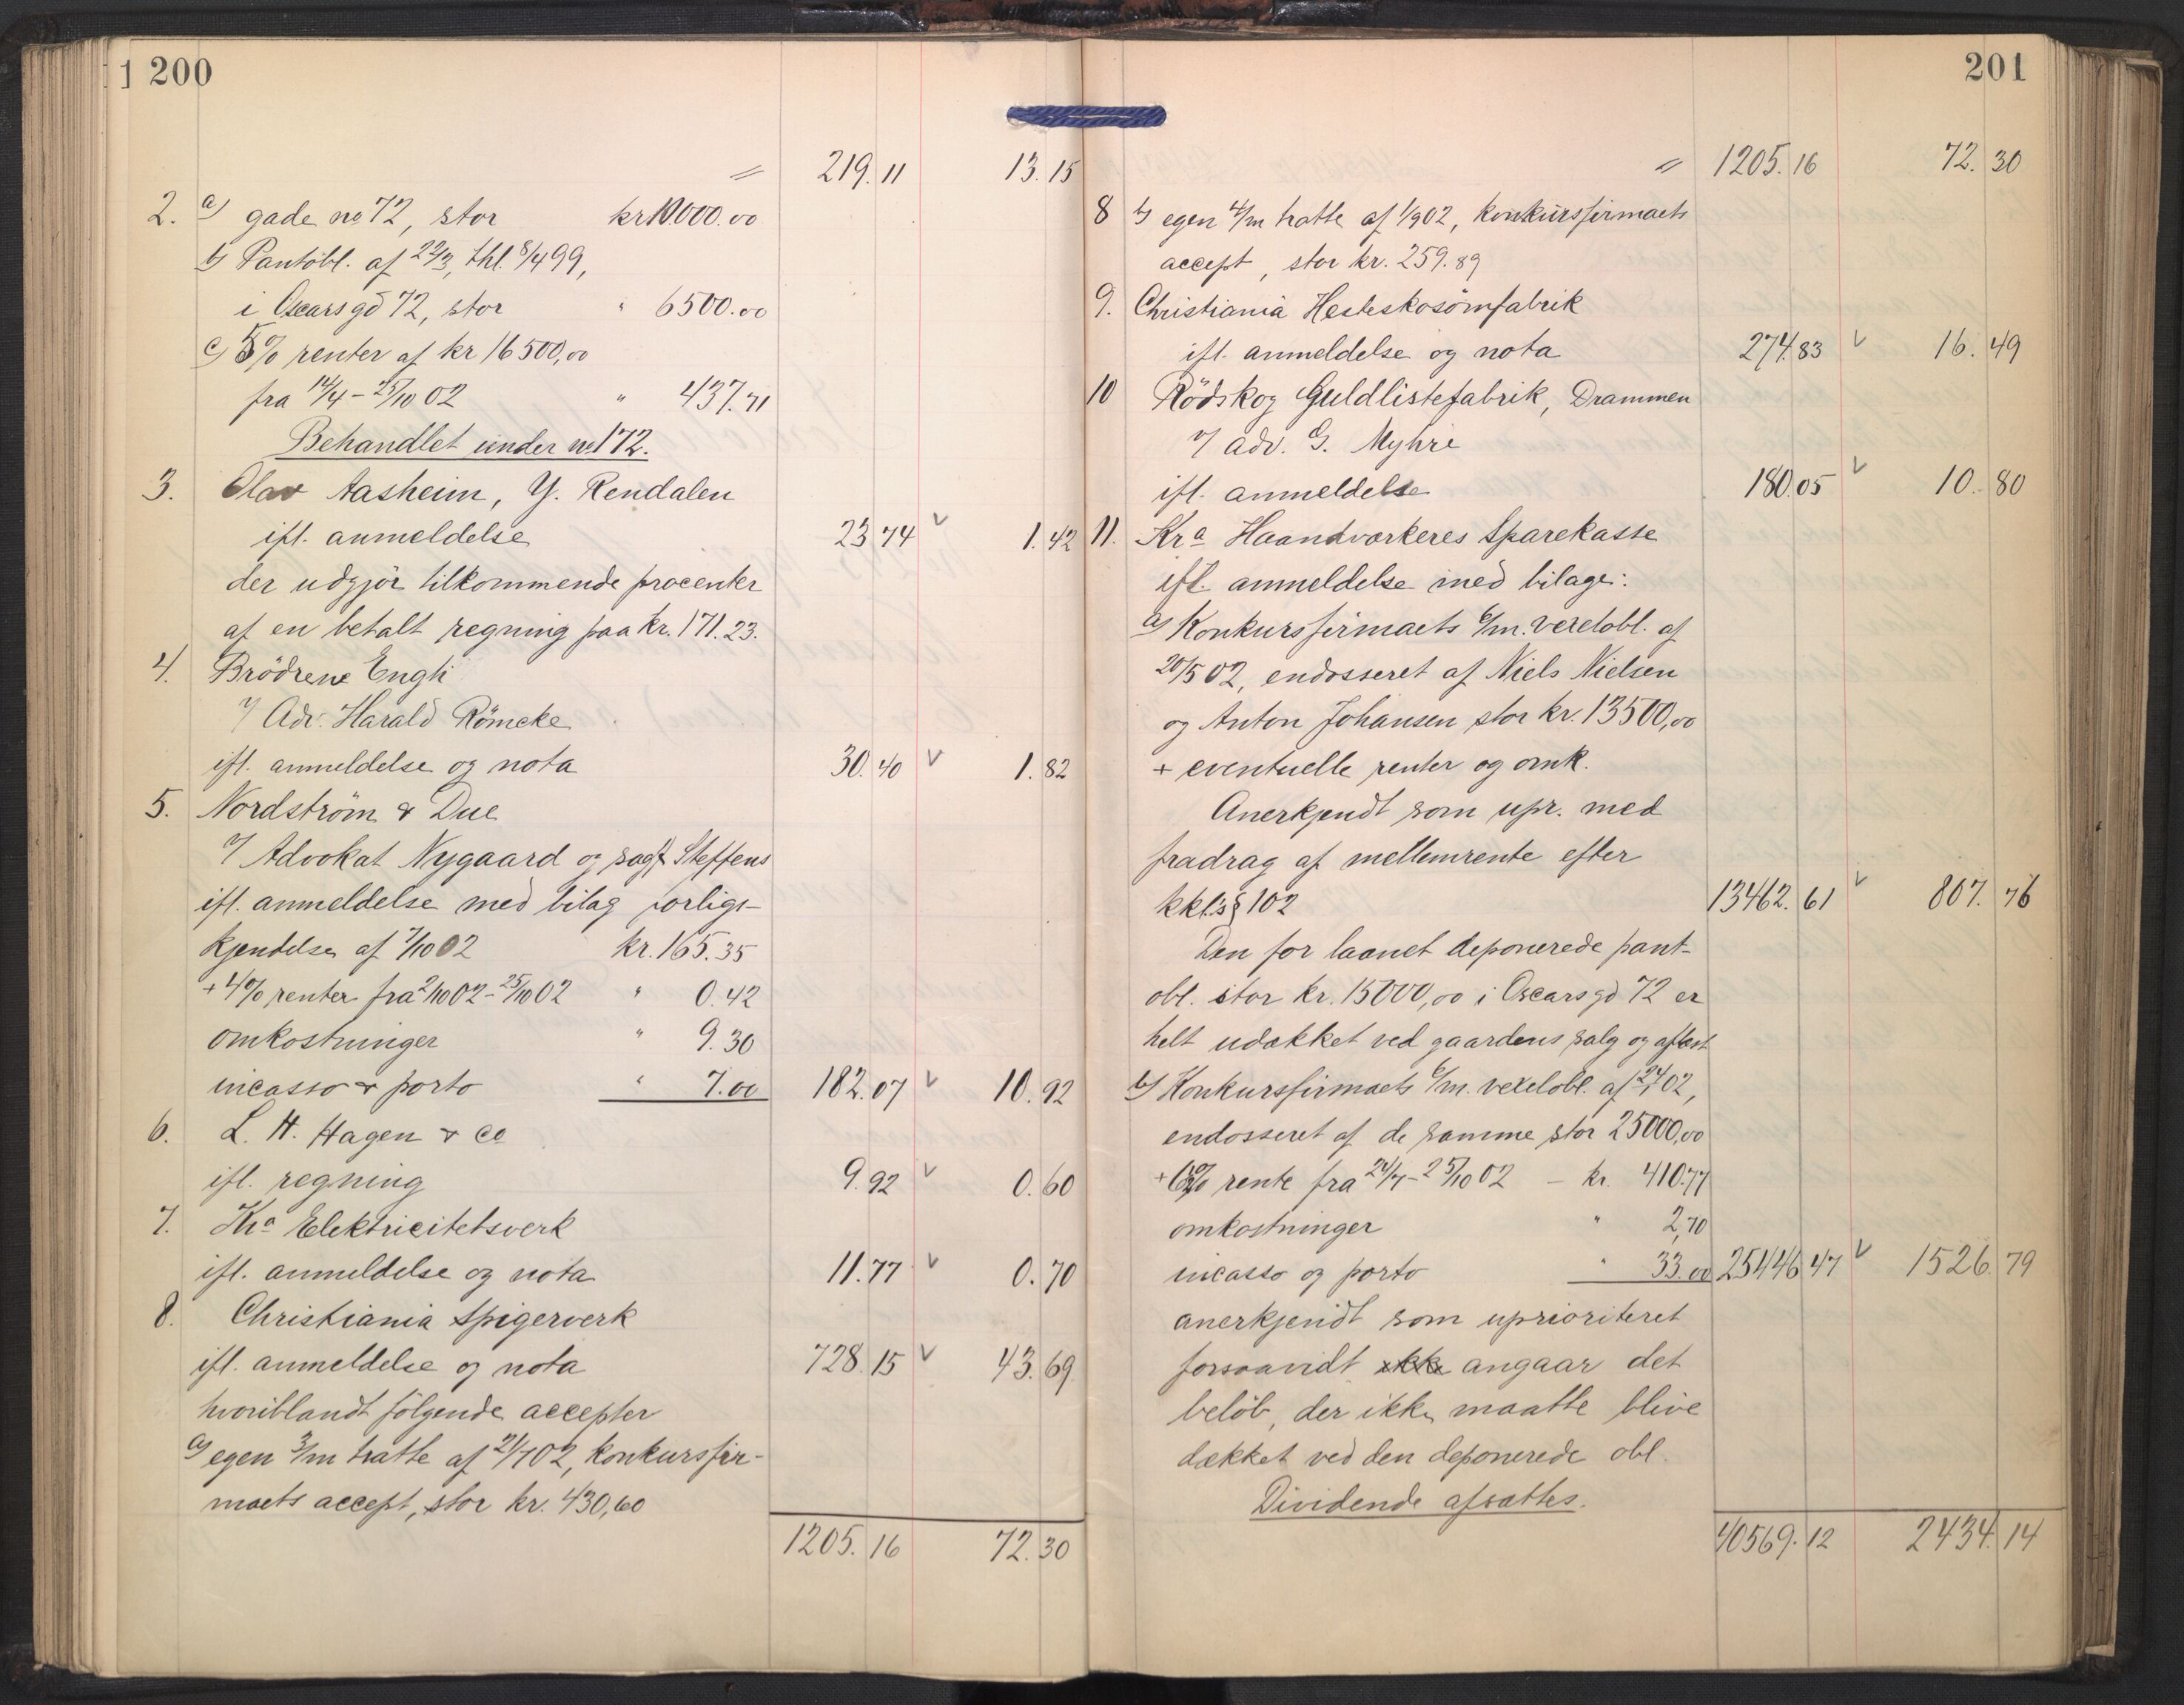 1 200
〃 219. 11 13. 15
2. a) gade no 72, stor kr 10000.00
b) Pantobl. af 22/3, thl. 8/4 99,
i Oscarsgd 72, stor " 6500.00
c) 5% renter af kr 16500,00
fra 14/4 - 25/10 02 " 437.71
Behandlet under no 172.
3. Olav Aasheim, Y. Rendalen
ifl. anmeldelse 23 74 v 1. 42
der udgjör tilkommende procenter
af en betalt regning paa kr. 171.23.
4. Brödrene Engh
v/ Adv. Harald Römcke
ifl. anmeldelse og nota 30. 40 v 1. 82
5. Nordström & Due
v/ Advokat Nygaard og sagf. Steffens
ifl. anmeldelse med bilag forligs-
kjendelse af 7/10 02 kr. 165.35
+ 4% renter fra 2/10 02 - 25/10 02 " 0.42
omkostninger " 9.30
incasso & porto " 7.00 182. 07 v 10. 92
6. L. H. Hagen & Co
ifl. regning 9. 92 v 0. 60
7. Kra Elektricitetsverk
ifl. anmeldelse og nota 11. 77 v 0. 70
8. Christiania Spigerverk
ifl. anmeldelse og nota 728. 15 v 43. 69
hvoriblandt fölgende accepter
a) egen 3/m tratte af 21/7 02, konkursfir-
maets accept, stor kr. 430,60
1205. 16 72. 30
201
〃 1205. 16 72. 30
8 b) egen 4/m tratte af 1/9 02, konkursfirmaets
accept, stor kr. 259.89
9. Christiania Hesteskosömfabrik
ifl. anmeldelse og nota 274. 83 v 16. 49
10 Rödskog Guldlistefabrik, Drammen
v/ adv. G. Myhre
ifl. anmeldelse 180. 05 v 10. 80
11. Kra Haandværkeres Sparekasse
ifl. anmeldelse med bilage:
a) Konkursfirmaets 6/m. vexelobl. af
20/5 02, endosseret af Niels Nielsen
og Anton Johansen stor kr. 13500,00
+ eventuelle renter og omk.
Anerkjendt som upr. med
fradrag af mellemrente efter
kkl.s § 102 13462. 61 v 807. 76
Den for laanet deponerede pant-
obl. stor kr. 15000,00 i Oscarsgd 72 er
helt udækket ved gaardens salg og aflæst
b) Konkursfirmaets 6/m. vexelobl. af 24/1 02,
endosseret af de samme stor 25000,00
+ 6½% rente fra 24/7 - 25/10 02 - kr. 410.77
omkostninger " 2,70
incasso og porto " 33.00 25446 47 v 1526. 79
anerkjendt som uprioriteret
forsaavidt ikke angaar det
beløb, der ikke maatte blive
dækket ved den deponerede obl.
Dividende afsættes.
40569. 12 2434. 14